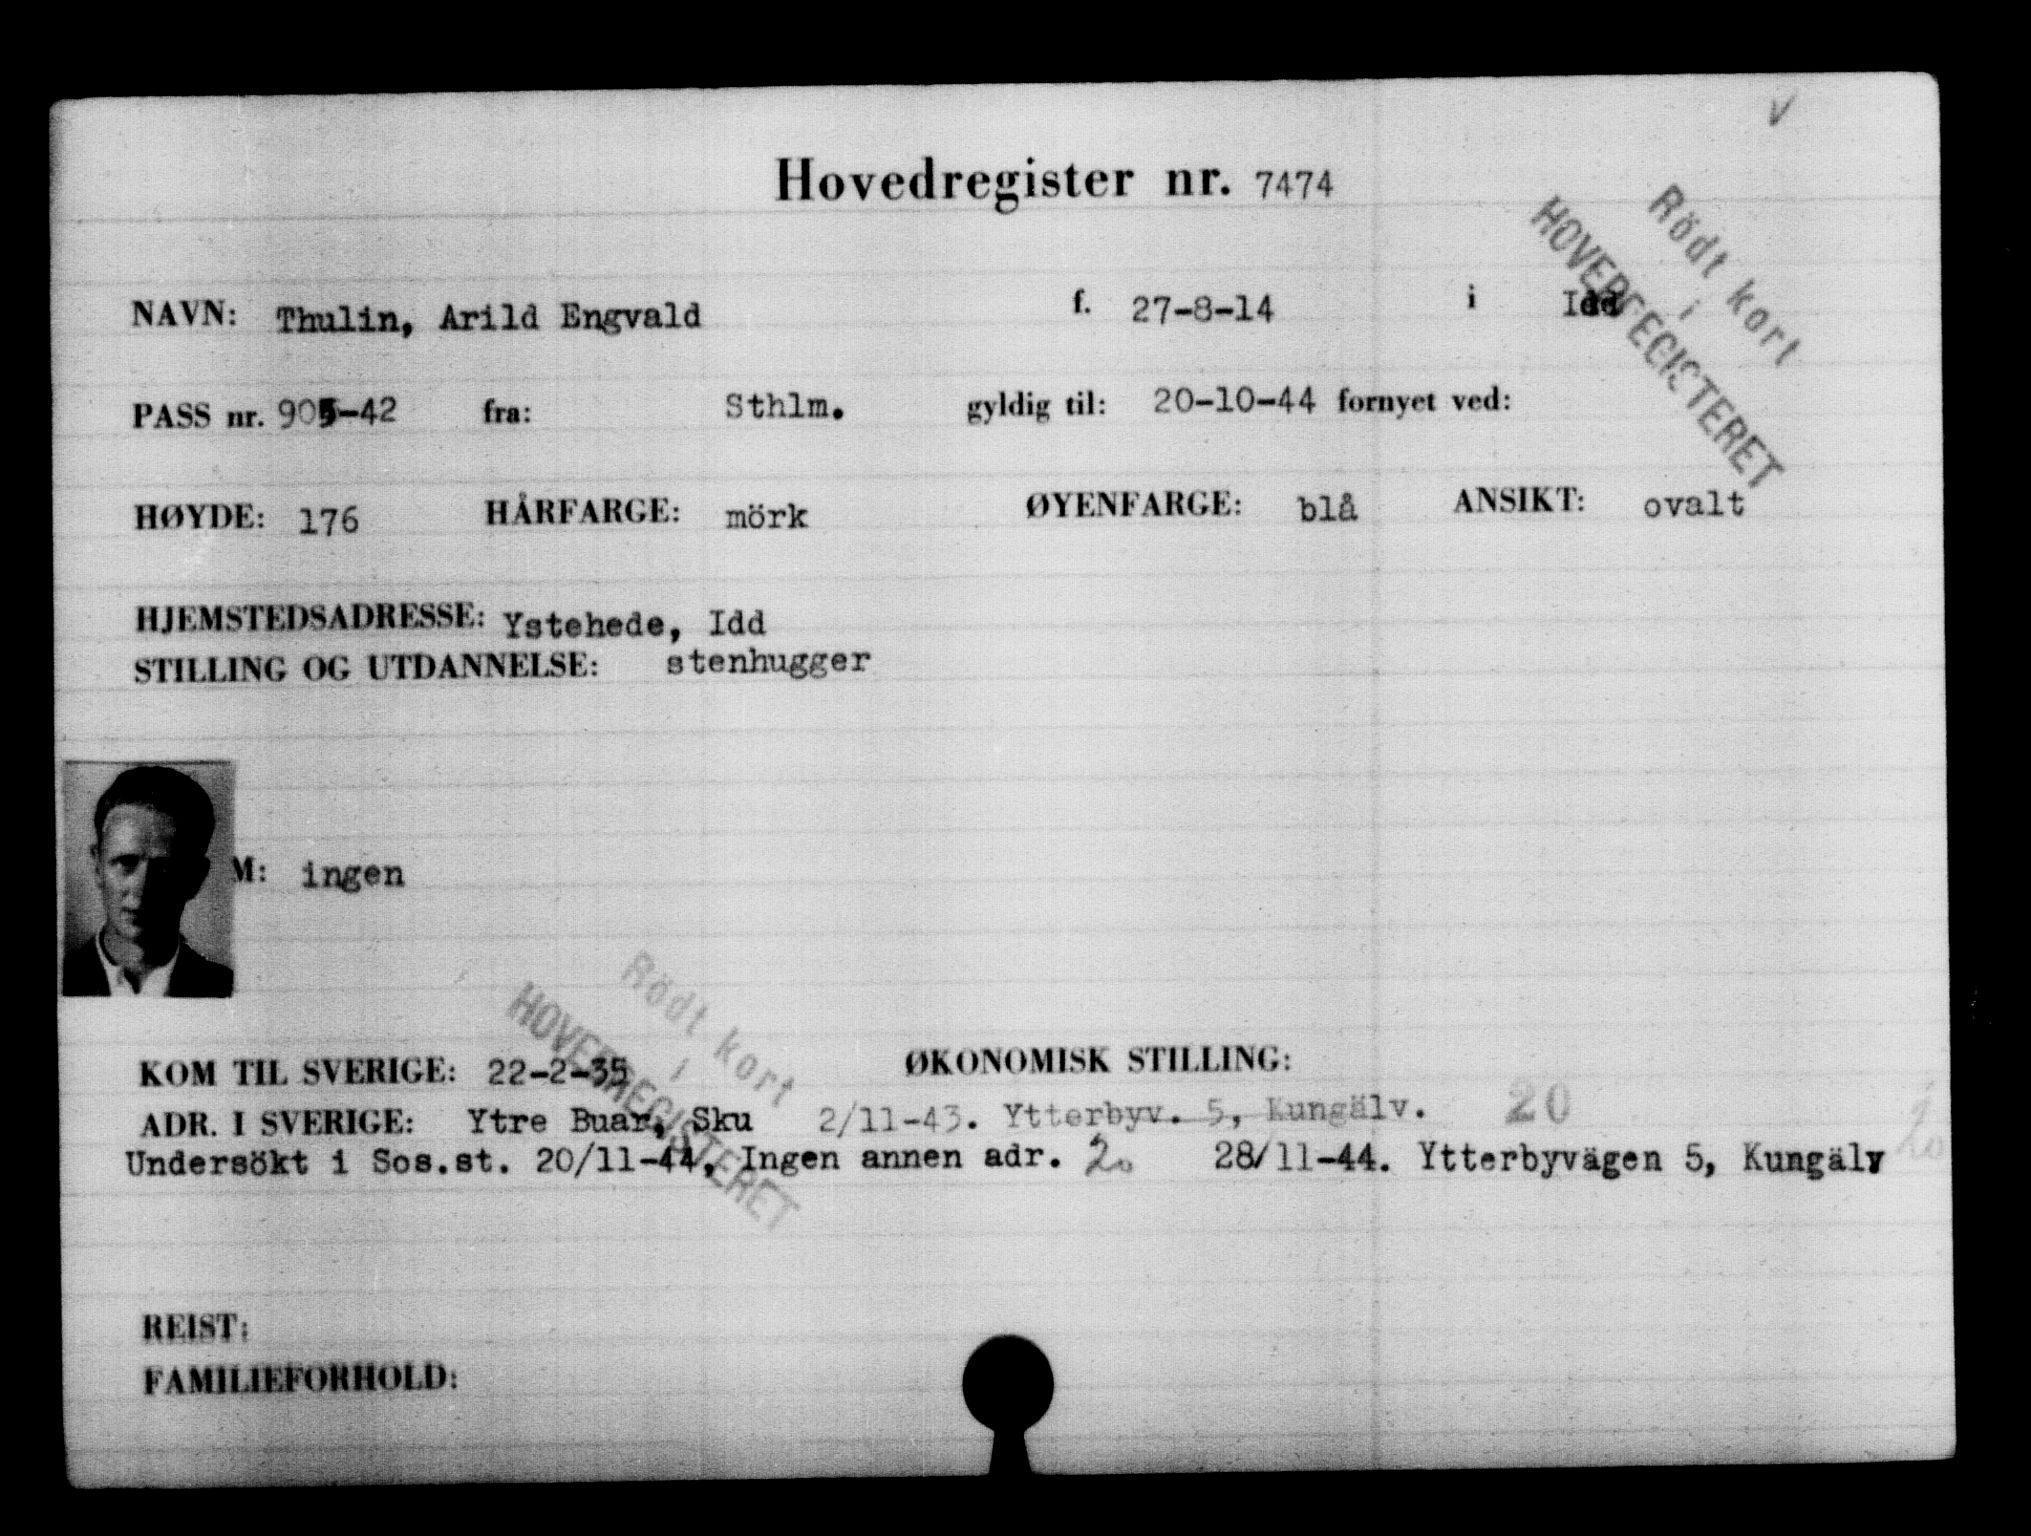 Hovedregister nr. 7474
Rödt kort
i
HOVEDREGISTERET
NAVN: Thulin, Arild Engvald f. 27-8-14 i Idd
PASS nr. 905-42 fra: Sthlm. gyldig til: 20-10-44 fornyet ved:
HØYDE: 176 HÅRFARGE: mörk ØYENFARGE: blå ANSIKT: ovalt
HJEMSTEDSADRESSE: Ystehede, Idd
STILLING OG UTDANNELSE: stenhugger
M: ingen
Rödt kort
i
HOVEDREGISTERET
KOM TIL SVERIGE: 22-2-35 ØKONOMISK STILLING:
ADR. I SVERIGE: Ytre Buar, Sku 2/11-43. Ytterbyv. 5, Kungälv. 20
Undersökt i Sos.st. 20/11-44, Ingen annen adr. 20 28/11-44. Ytterbyvägen 5, Kungälv 20
REIST:
FAMILIEFORHOLD: